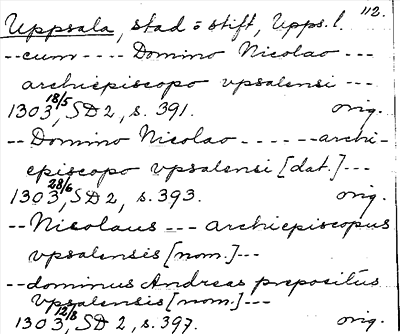 112.
Uppsala, stad o stift, Upps. l.
-- cum ---- Domino Nicolao ---
archiepiscopo vpsalensi ---
1303 18/5, SD 2, s. 391. orig.
-- Domino Nicolao ------ archi-
episcopo vpsalensi [dat.] ---
1303 28/6, SD 2, s. 393. orig.
-- Nicolaus --- archiepiscopus
vpsalensis [nom.] ---
-- dominus Andreas prepositus
vpsalensis [nom.] ---
1303 12/8, SD 2, s. 397. orig.